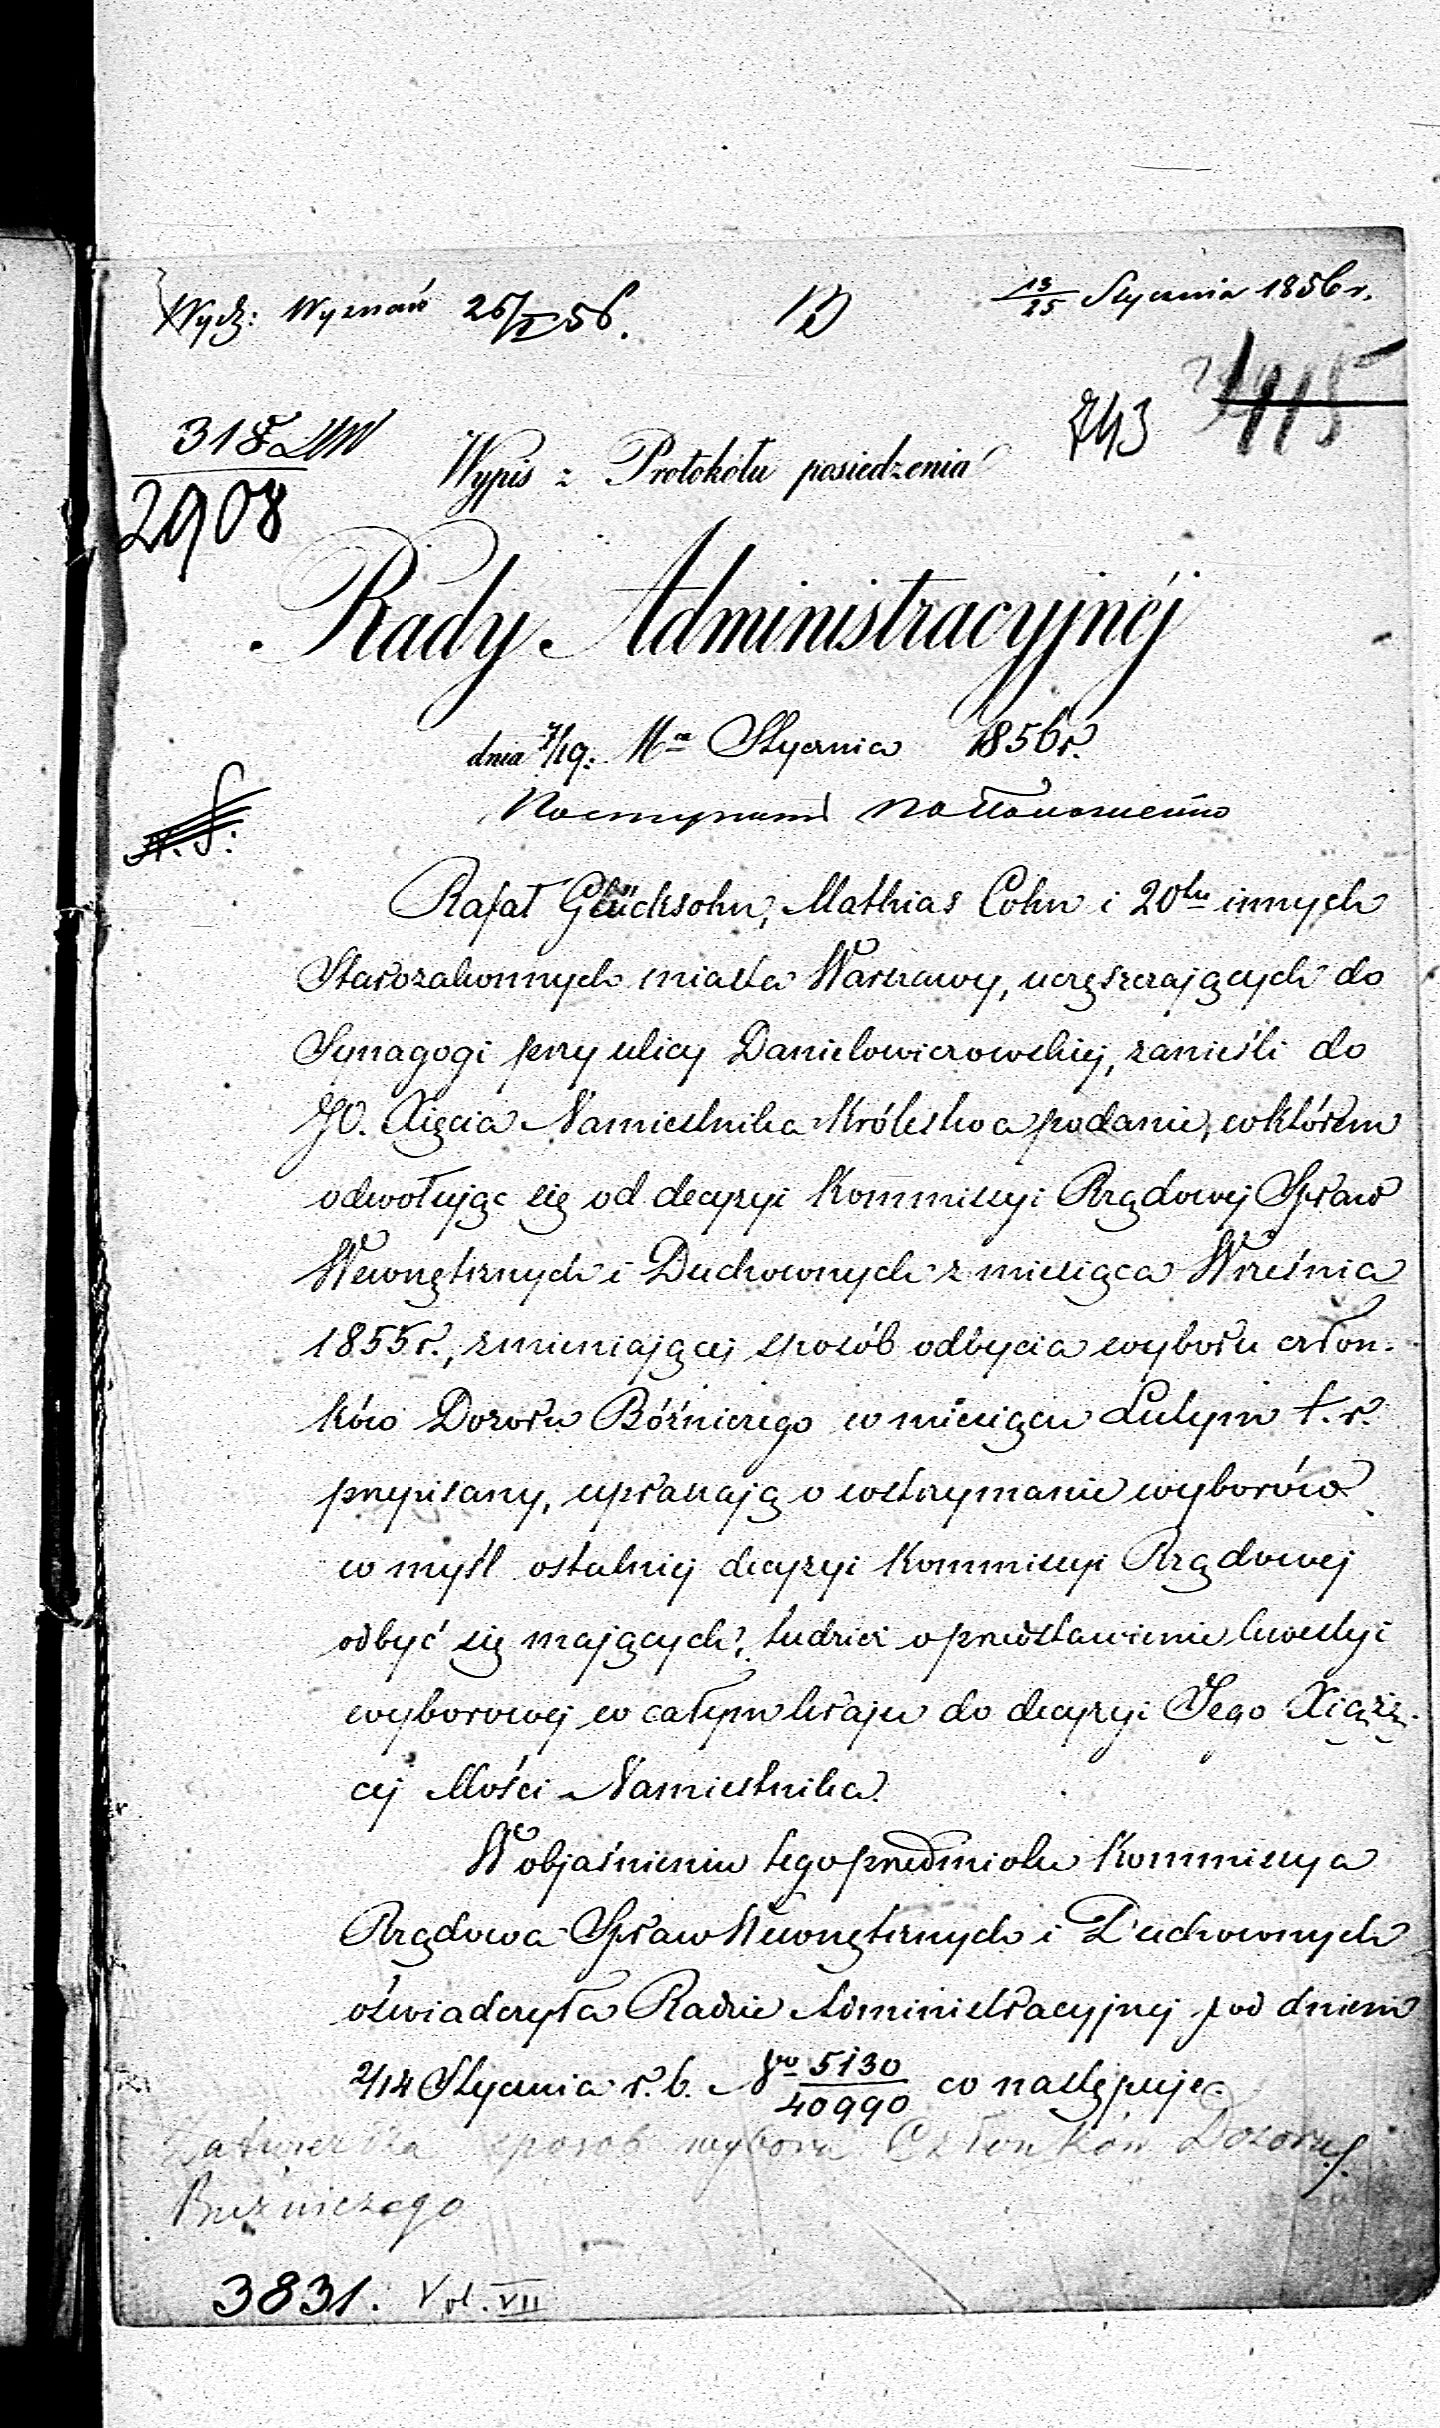 Wydz: Wyznań 25/I 56.
13/25 Stycznia 1856 r.
743
318
2908
Wypis z Protokółu posiedzenia
Rady Administracyjnéj
dnia 7/19. Mca Stycznia 1856 r.
Rafał Glücksohn, Mathias Cohn i 20tu innych
Starozakonnych miasta Warszawy, uczęszczających do
Synagogi przy ulicy Danielowiczowskiej, zanieśli do
JO. Xięcia Namiestnika Królestwa podanie, w którem
odwołując się od decyzyi Kommissyi Rządowej Spraw
Wewnętrznych i Duchownych z miesiąca Września
1855 r., zmieniającej sposób odbycia wyboru człon-
ków Dozoru Bóżniczego w miesiącu Lutym t. r.
przepisany, upraszają o wstrzymanie wyborów
w myśl ostatniej decyzyi Kommissyi Rządowej
odbyć się mających, tudzież o przedstawienie kwestyi
wyborowej w całym kraju do decyzyi Jego Xiążę-
cej Mości Namiestnika.
W objaśnieniu tego przedmiotu Kommissya
Rządowa Spraw Wewnętrznych i Duchownych
oświadczyła Radzie Administracyjnej pod dniem
2/14 Stycznia r. b. No 5130/40990 co następuje.
Zatwierdza sposób wyboru Członków Dozoru
Bużniczego
3831. Vol. VII